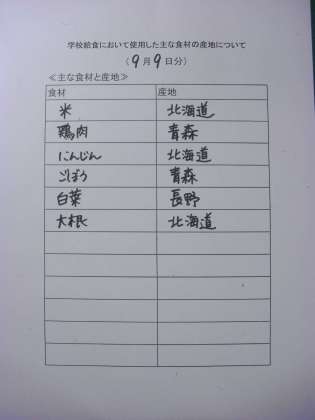 学校給食において使用した主な食材の産地について
(9月9日分)
≪主な食材と産地≫
食材 産地
米 北海道
鶏肉 青森
にんじん 北海道
ごぼう 青森
白菜 長野
大根 北海道